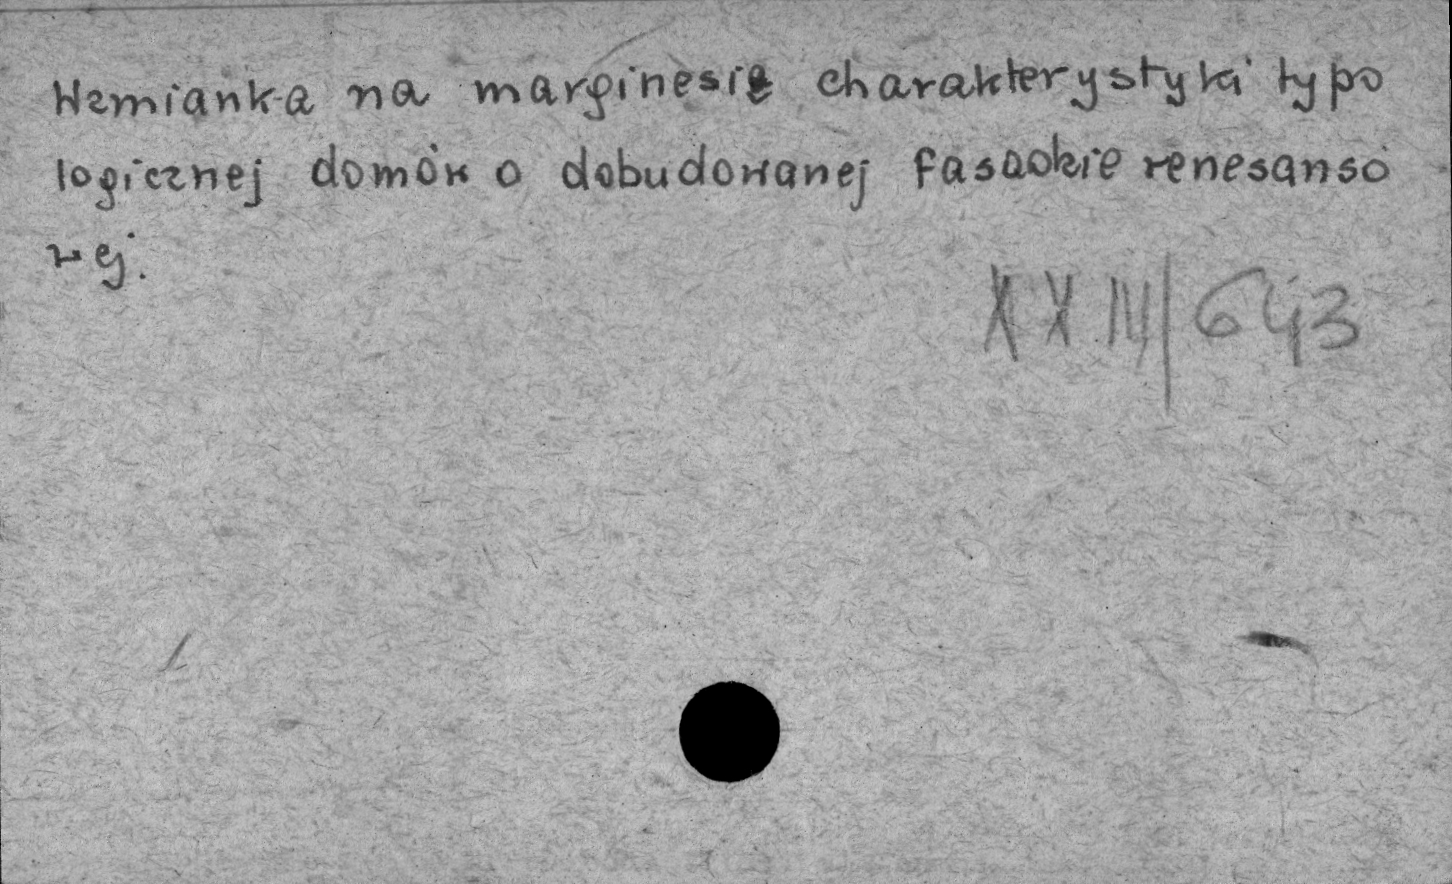 Wzmianka na marginesie charakterystyki typo
logicznej domów o dobudowanej fasadzie renesanso
wej.
XXIV/643